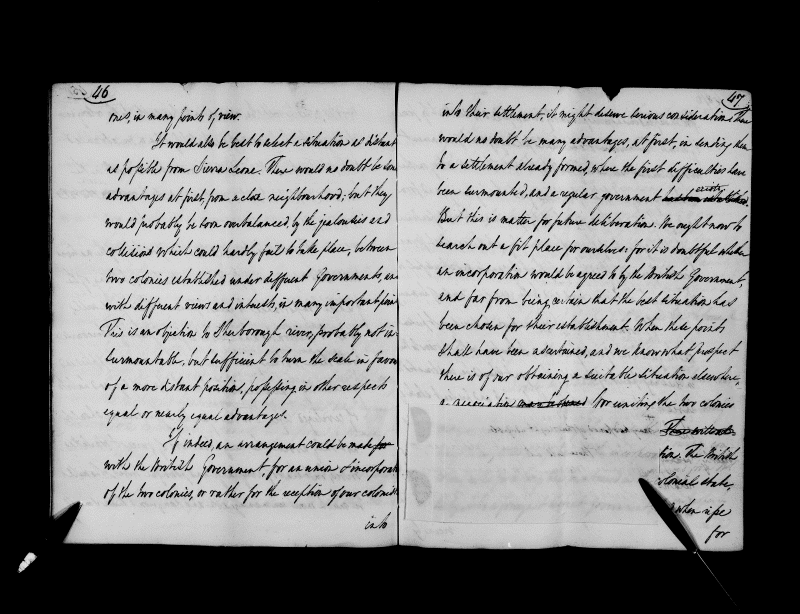 46
ones, in many points of view.
It would also be best to select a situation as distant
as possible from Sierra Leone. There would no doubt be some
advantages at first, from a close neighbourhood; but they
would probably be soon overbalanced, by the jealousies and
collisions which could hardly fail to take place, between
two colonies established under different Governments, an
with different views and interests, in many important poin
This is an objection to Sherborough river, probably not in-
surmountable, but sufficient to turn the scale in favou
of a more distant position, possessing in other respects
equal or nearly equal advantages.
If indeed, an arrangement could be made for
with the British Government, for an union & incorporat
of the two colonies, or rather for the reception of our colonist
into
47
into their settlement, it might deserve serious consideration. There
would no doubt be many advantages, at first, in sending them
to a settlement already formed, where the first difficulties have
been surmounted, and a regular government had been established.
exists
But this is matter for future deliberation. We ought now to
search out a fit place for ourselves: for it is doubtful whether
an incorporation would be agreed to by the British Government,
and far from being certain that the best situation has
been chosen for their establishment. When these points
shall have been ascertained, and we know what prospect
there is of our obtaining a suitable situation elsewhere,
a negociation for uniting the two colonies
tion. The British
colonial state,
when ripe
for